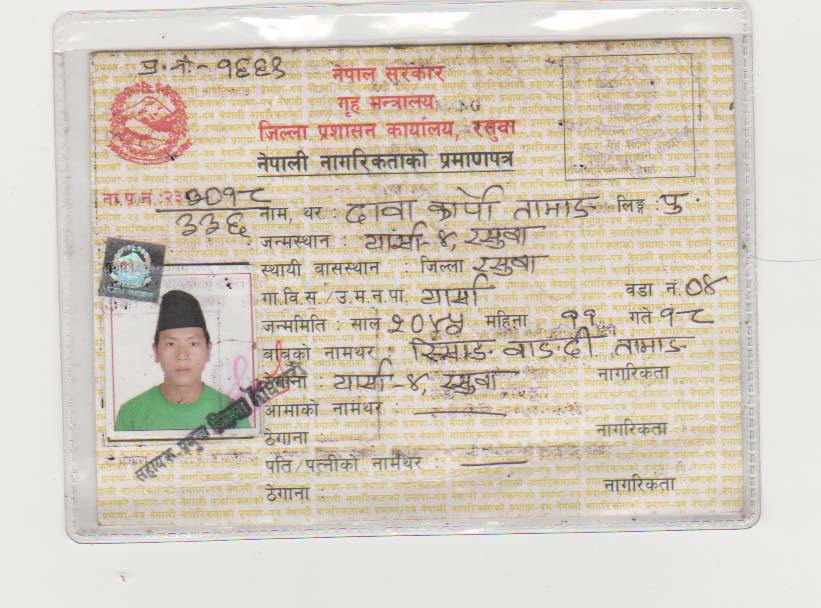 प्र. नं.- १९६९
नेपाल सरकार
गृह मन्त्रालय
जिल्ला प्रशासन कार्यालय, रसुवा
नेपाली नागरिकताको प्रमाणपत्र
ना.प्र.नं.:२३
३३६
नाम, थर : दावा कार्पो तामाङ लिङ्ग : पु.
जन्मस्थान : यार्सा-४, रसुवा
स्थायी बासस्थान : जिल्ला रसुवा
गा.वि.स./उ.म.न.पा. यार्सा वडा नं. ०४
जन्ममिति : साल २०४५ महिना ११ गते १८
बाबुको नामथर : तामाङ
ठेगाना : यार्सा-४, रसुवा नागरिकता
आमाको नामथर :
ठेगाना नागरिकता
पति/पत्नीको नामथर :
ठेगाना : नागरिकता
सहायक प्रमुख जिल्ला अधिकारी